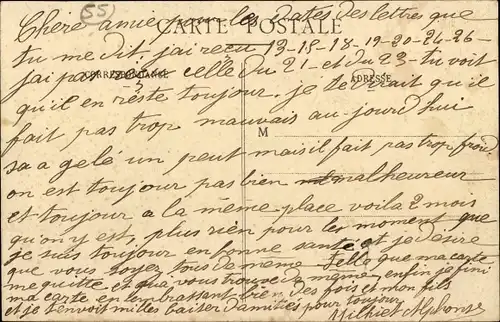 55
CARTE POSTALE
CORRESPONDANCE
ADRESSE
M
Chère amie pour les dates des lettres que
tu me dit j'ai reçu 13-15-18-19-20-24-26-
j'ai pas celle du 21 et du 23- tu voit
qu'il en reste toujour. je te dirait qu'il
fait pas trop mauvais au-jourd'hui
sa a gelé un peut mais il fait pas trop froid
on est toujour pas bien malheureux
et toujour a la même place voila 2 mois
qu'on y est, plus rien pour les moment que
je suis toujour en bonne santé et je désire
que vous soyez tous de même que ma carte
me quitte et que vous trouve de même enfin je fini
ma carte en tembrassant bien des fois et mon fils
et je t'envoit milles baiser d'amitiés pour toujour
Alphonse